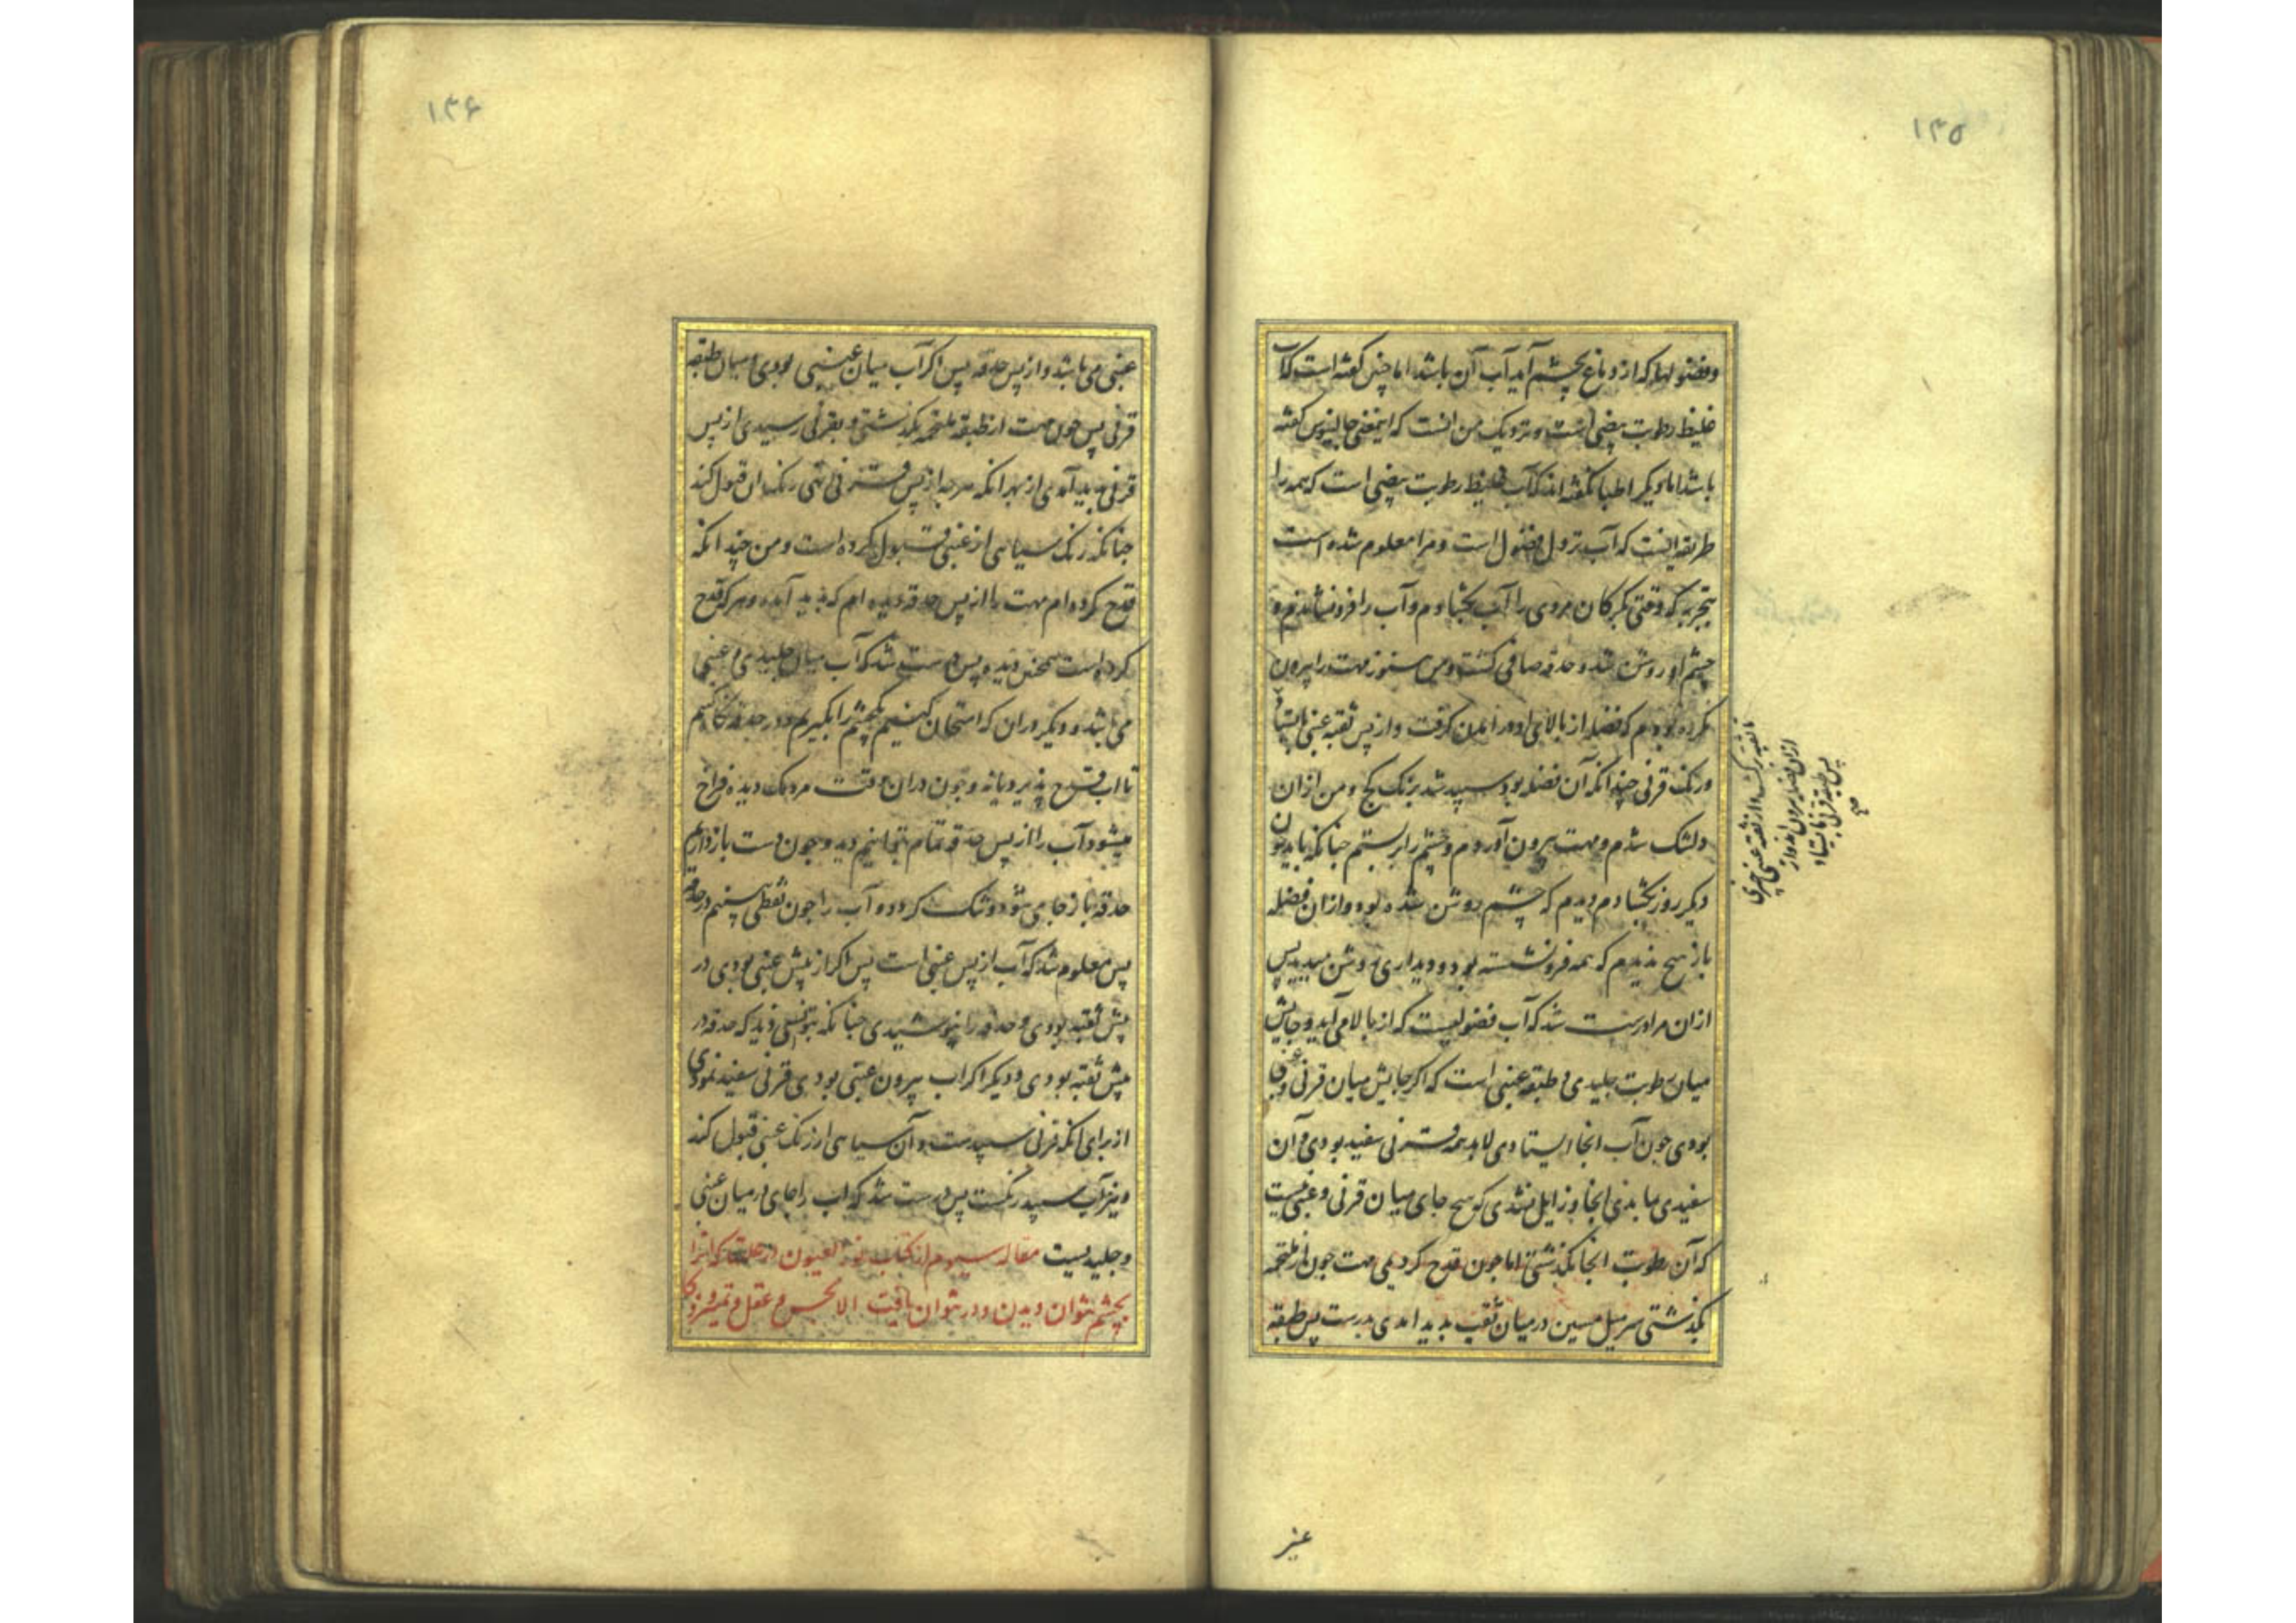 ۱۳۵
وفضولها که از دماغ بچشم آید آب آن باشد اما چنین کفته است که آب
غلیظ رطوبت بیضی است و نزدیک من انست که اینمعنی جالینوس کفته
باشد اما دیکر اطبا نکفته اند که آب غلیظ رطوبت بیضی است که همه را
طریقه اینست که آب نزول فضول است و مرا معلوم شده است
بتجربه که وقتی بکرکان مردی را آب بکشادم و آب را فرونشاندم و
چشم او روشن شد و حدقه صافی کشت و من هنوز مهت را بیرون
نکرده بودم که فضله از بالای او در امدن کرفت و از پس ثقبه عنبی بایستاد
ورنک قرنی چندانکه آن فضله بود سپید شد برنک کج و من ازان
دلتنک شدم و مهت بیرون آوردم و چشم را بر بستم چنانکه باید چون
دیکر روز بکشادم دیدم که چشم روشن شده بود و ازان فضله
باز هیچ ندیدم که همه فرو نشسته بود و دیداری روشن میدید پس
ازان مرا درست شد که آب فضولیست که از بالا می آید و جایش
میان رطوبت جلیدی و طبقه عنبی است که اکر جایش میان قرنی و عنبی
بودی چون آب انجا ایستادی لابد همه قرنی سفید بودی و آن
سفیدی بماندی انجا و زایل نشدی که هیچ جای میان قرنی و عنبی نیست
که آن رطوبت انجا بکذشتی اما چون قدح کردیمی مهت چون از ملتحمه
بکذشتی سر میل مسین در میان ثقب بدید امدی بدرست پس طبقه
ازان فضله بیرون اند و از
پس طبقه قرنی بایستاد
صح
عنبر
۱۳۶
عنبی می باشد و از پس حدقه پس اکر آب میان عنبی بودی و میان طبقه
قرنی پس چون مهت از طبقه ملتحمه بکذشتی و بقرنی رسیدی از پس
قرنی بدید آمدی از بهر انکه هرچه از پس قرنی نهی رنک ان قبول کند
چنانکه رنک سیاهی از عنبی قبول کرده است و من چندانکه
قدح کرده ام مهت را از پس حدقه دیده ام که بدید آمده و هرکه قدح
کرده است همچنین دیده پس درست شد که آب میان جلیدی و عنبی
می باشد و دیکر دران که امتحان کنیم یکچشم را بکیریم و در حدقه نکاه کنیم
تا اب قدح پذیرد یا نه و چون دران وقت مردمک دیده فراخ
میشود آب را از پس حدقه تمام بتوانیم دید و چون دست باز داریم
حدقه باز جای شود و تنک کردد و آب را چون نقطی بینیم در حدقه
پس معلوم شد که آب از پس عنبی است پس اکر از پیش عنبی بودی در
پیش ثقبه بودی و حدقه را بپوشیدی چنانکه نتوانستی دید که حدقه در
پیش ثقبه بودی و دیکر اکر اب بیرون عنبی بودی قرنی سفید نمودی
از برای انکه قرنی سپیدست و آن سیاهی از رنک عنبی قبول کند
و نیز آب سپید رنکست پس درست شد که اب را جای در میان عنبی
و جلیدیست مقاله سیوم از کتاب نور العیون در علتها که انرا
بچشم نتوان دیدن و در نتوان یافت الا بحس و عقل و تمیز و فکر